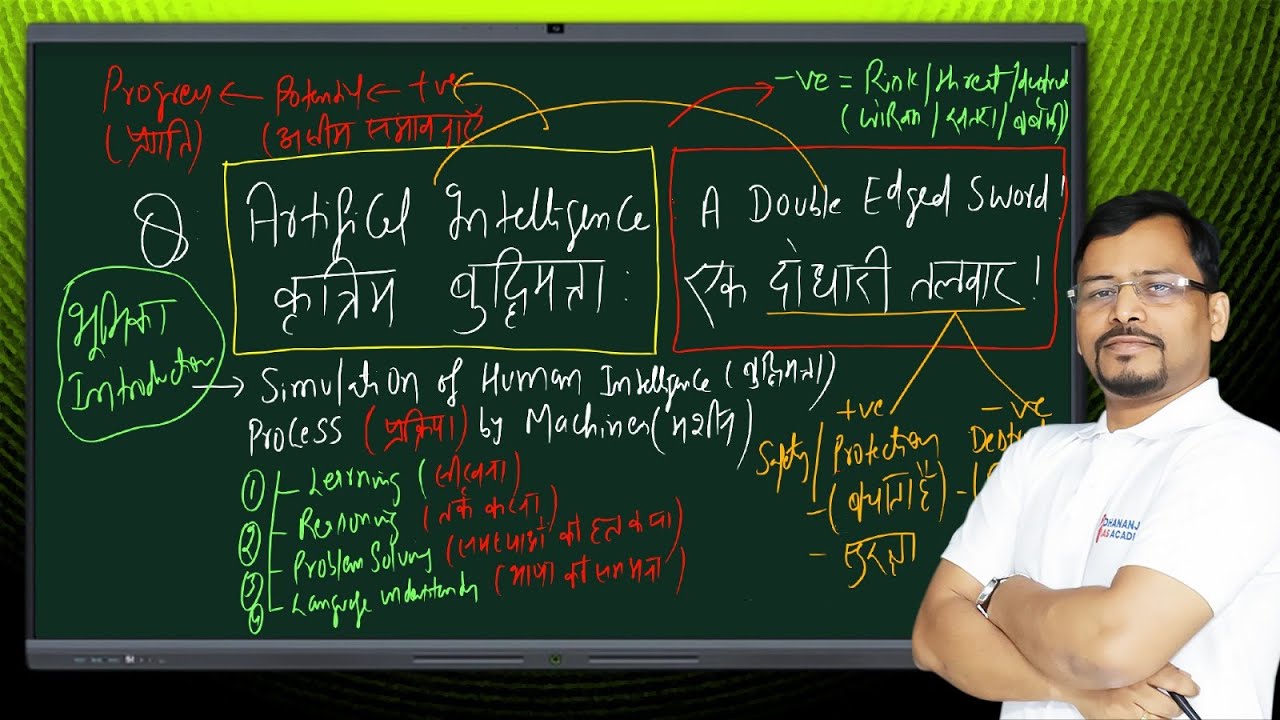 Progress ← Potential ← +ve
(प्रगति) (असीम संभावनाएँ
-ve = Risk/threat/
(जोखिम / खतरा / बर्बादी)
Q
Artifical Intelligence
कृत्रिम बुद्धिमत्ता :
A Double Edged Sword!
एक दोधारी तलवार!
भूमिका
Introduction
→ Simulation of Human Intelligence (बुद्धिमत्ता)
Process (प्रक्रिया) by Machines (मशीन)
① Learning (सीखना)
② Reasoning (तर्क करना)
③ Problem Solving (समस्याओं को हल करना)
④ Language understanding (भाषा को समझना)
+ve
Safety/Protection
-(बचाता है)
- सुरक्षा
-ve
DHANANJ
IAS ACADE